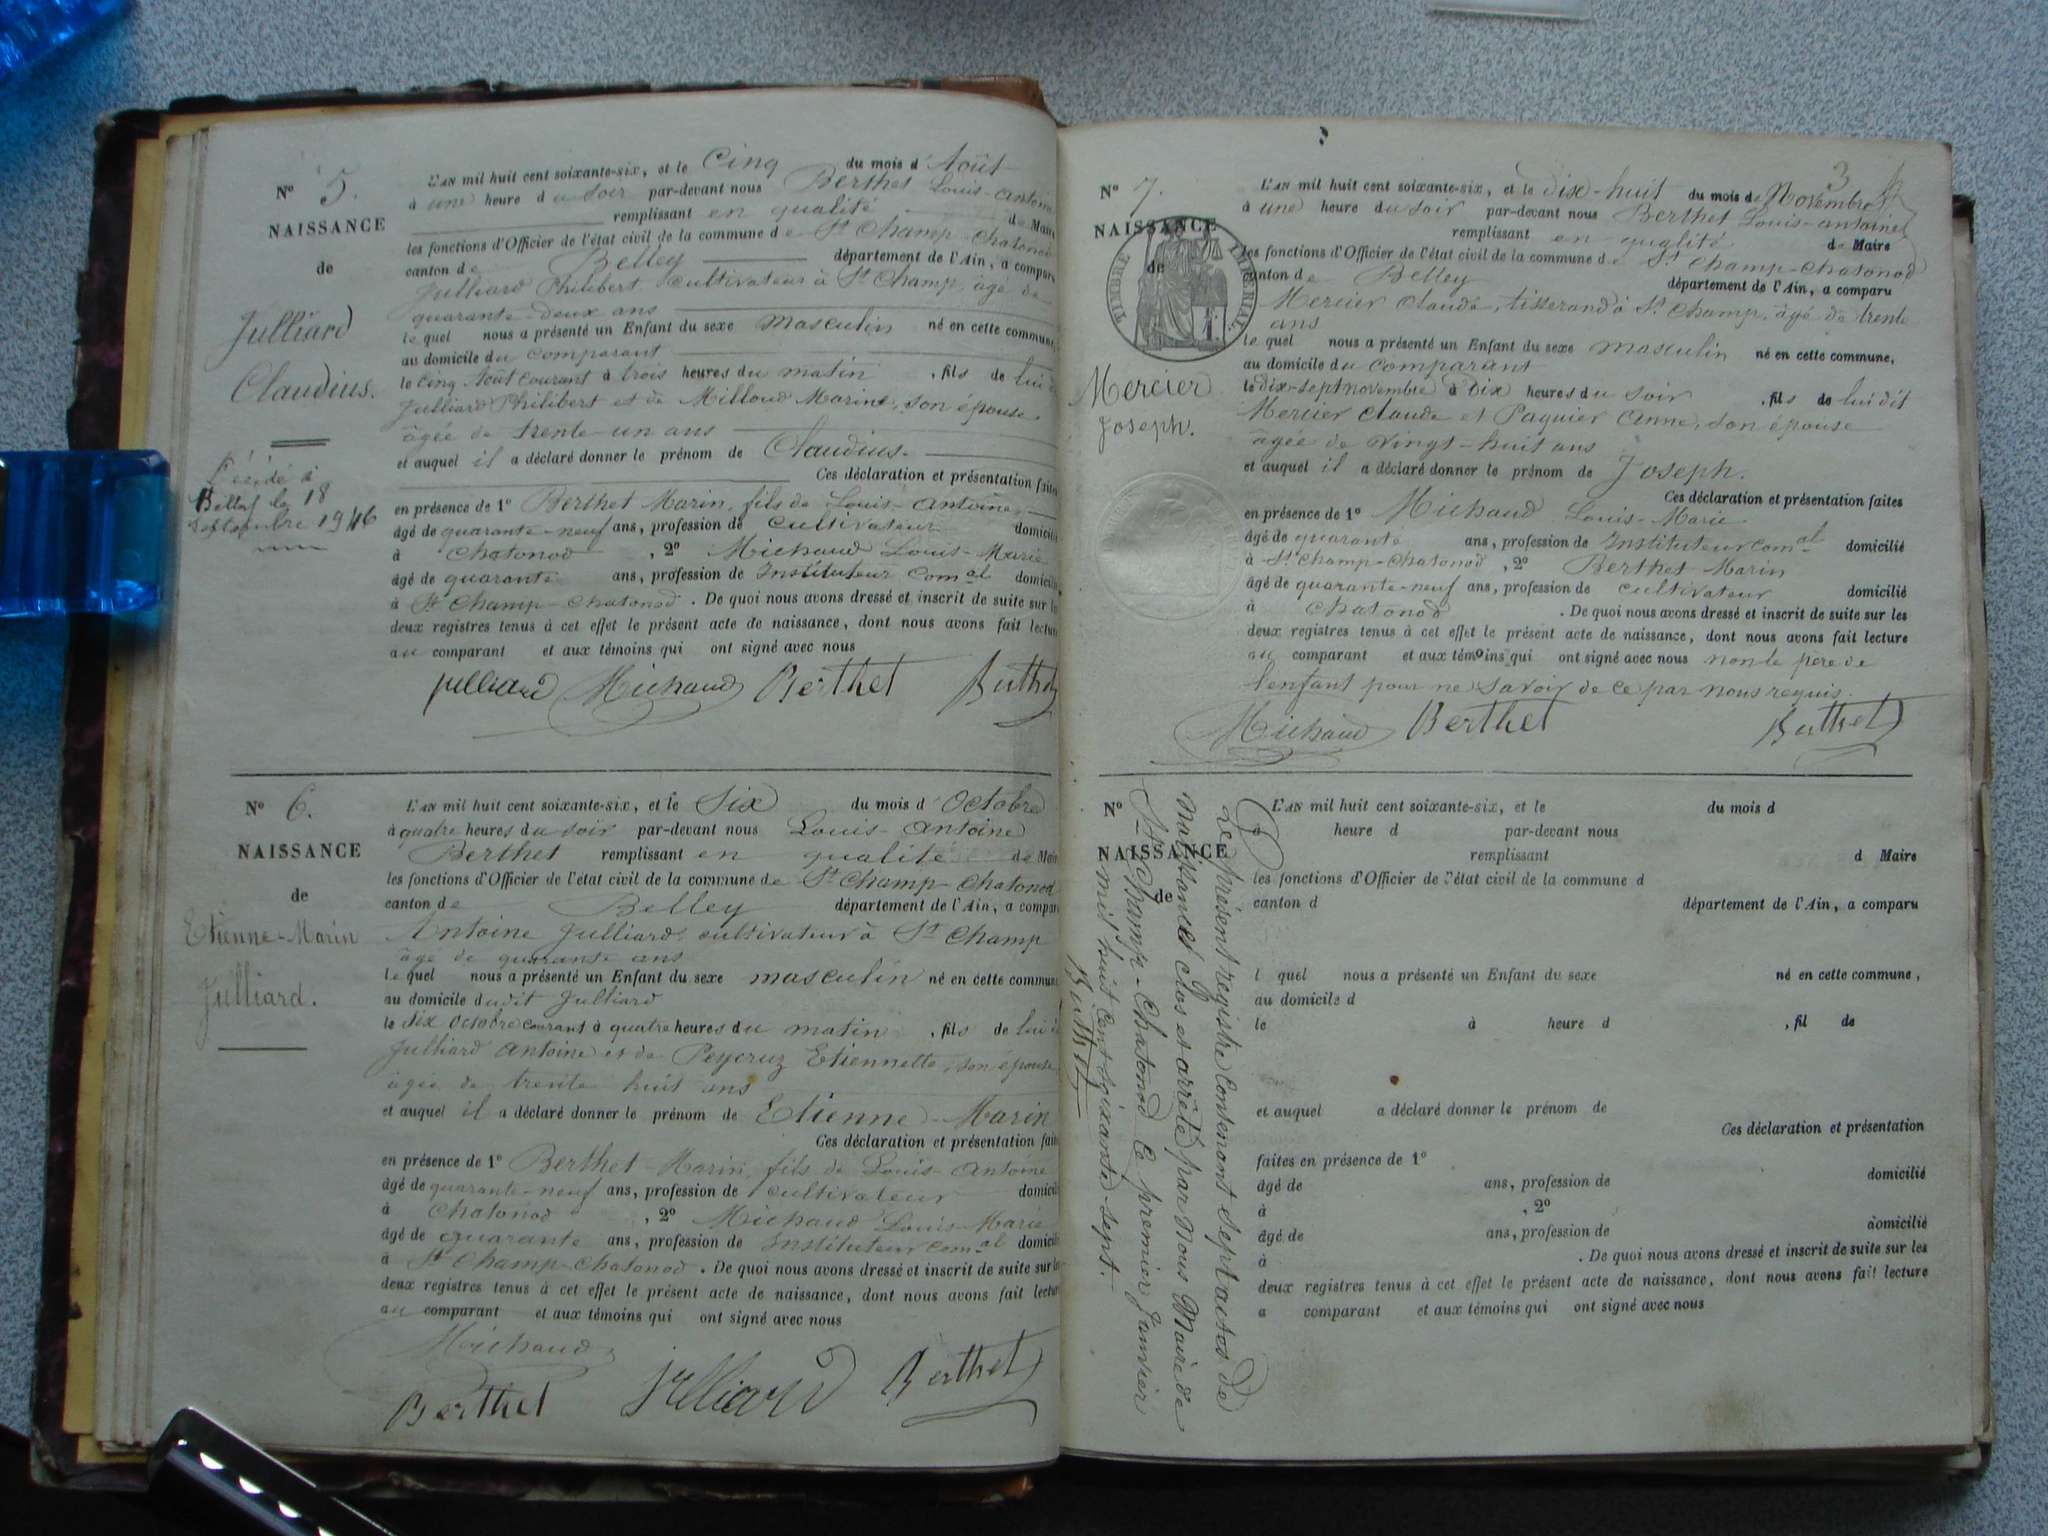 N° 5.
NAISSANCE
de
Julliard
Claudius.
Décédé à
le 18
septembre 1946
L'AN mil huit cent soixante-six, et le Cinq du mois d'Août
à une heure du soir par-devant nous Berthet Louis-Antoine
remplissant en qualité de Maire
les fonctions d'Officier de l'état civil de la commune de St Champ-Chatonod
canton de Belley département de l'Ain, a comparu
Julliard Philibert cultivateur à St Champ, âgé de
quarante-deux ans
lequel nous a présenté un Enfant du sexe masculin né en cette commune,
au domicile du comparant
le cinq Août courant à trois heures du matin, fils de lui dit
Julliard Philibert et de Milloud Marine, son épouse,
âgée de trente-un ans
et auquel il a déclaré donner le prénom de Claudius.
Ces déclaration et présentation faites
en présence de 1° Berthet Marin, fils de Louis-Antoine,
âgé de quarante-neuf ans, profession de cultivateur domicilié
à Chatonod, 2° Michaud Louis-Marie
âgé de quarante ans, profession de Instituteur com.al domicilié
à St Champ-Chatonod. De quoi nous avons dressé et inscrit de suite sur les
deux registres tenus à cet effet le présent acte de naissance, dont nous avons fait lecture
au comparant et aux témoins qui ont signé avec nous
Julliard Michaud Berthet Berthet
N° 6.
NAISSANCE
de
Etienne-Marin
Julliard.
L'AN mil huit cent soixante-six, et le Six du mois d'Octobre
à quatre heures du soir par-devant nous Louis-Antoine
Berthet remplissant en qualité de Maire
les fonctions d'Officier de l'état civil de la commune de St Champ-Chatonod
canton de Belley département de l'Ain, a comparu
Antoine Julliard, cultivateur à St Champ
âgé de quarante ans
lequel nous a présenté un Enfant du sexe masculin né en cette commune
au domicile dudit Julliard
le Six Octobre courant à quatre heures du matin, fils de lui dit
Julliard Antoine et de Peycruz Etiennette, son épouse
âgée de trente huit ans
et auquel il a déclaré donner le prénom de Etienne-Marin
Ces déclaration et présentation faites
en présence de 1° Berthet Marin, fils de Louis-Antoine
âgé de quarante-neuf ans, profession de cultivateur domicilié
à Chatonod, 2° Michaud Louis-Marie
âgé de quarante ans, profession de Instituteur com.al domicilié
à St Champ-Chatonod. De quoi nous avons dressé et inscrit de suite sur les
deux registres tenus à cet effet le présent acte de naissance, dont nous avons fait lecture
au comparant et aux témoins qui ont signé avec nous
Michaud
Berthet Julliard Berthet
3
N° 7.
NAISSANCE
de
TIMBRE IMPERIAL
Mercier
Joseph.
L'AN mil huit cent soixante-six, et le dix-huit du mois de Novembre
à une heure du soir par-devant nous Berthet Louis-Antoine
remplissant en qualité de Maire
les fonctions d'Officier de l'état civil de la commune de St Champ-Chatonod
canton de Belley département de l'Ain, a comparu
Mercier Claude, tisserand à St Champ, âgé de trente
ans
lequel nous a présenté un Enfant du sexe masculin né en cette commune,
au domicile du comparant
le dix-sept novembre à dix heures du soir, fils de lui dit
Mercier Claude et Paquier Anne, son épouse
âgée de vingt-huit ans
et auquel il a déclaré donner le prénom de Joseph.
Ces déclaration et présentation faites
en présence de 1° Michaud Louis-Marie
âgé de quarante ans, profession de Instituteur com.al domicilié
à St Champ-Chatonod, 2° Berthet Marin
âgé de quarante-neuf ans, profession de cultivateur domicilié
à Chatonod. De quoi nous avons dressé et inscrit de suite sur les
deux registres tenus à cet effet le présent acte de naissance, dont nous avons fait lecture
au comparant et aux témoins qui ont signé avec nous non le père de
l'enfant pour ne savoir de ce par nous requis.
Michaud Berthet Berthet
N°
NAISSANCE
de
Le présent registre contenant sept actes de
Naissances clos et arrêté par nous Maire de
St Champ-Chatonod le premier Janvier
mil huit cent soixante-sept.
Berthet
L'AN mil huit cent soixante-six, et le du mois d
heure d par-devant nous
remplissant d Maire
les fonctions d'Officier de l'état civil de la commune d
canton d département de l'Ain, a comparu
l quel nous a présenté un Enfant du sexe né en cette commune,
au domicile d
le à heure d , fil de
et auquel a déclaré donner le prénom de
Ces déclaration et présentation
faites en présence de 1°
âgé de ans, profession de domicilié
à , 2°
âgé de ans, profession de domicilié
à . De quoi nous avons dressé et inscrit de suite sur les
deux registres tenus à cet effet le présent acte de naissance, dont nous avons fait lecture
a comparant et aux témoins qui ont signé avec nous